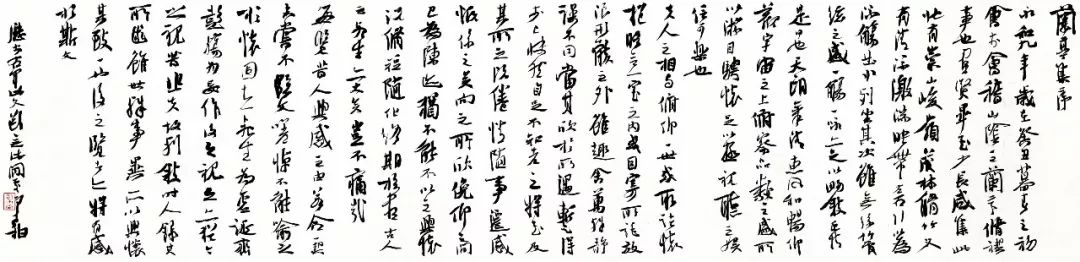 蘭亭集序
永和九年歲在癸丑暮春之初
會於會稽山陰之蘭亭脩禊
事也群賢畢至少長咸集此
地有崇山峻嶺茂林脩竹又
有清流激湍映帶左右引以為
流觴曲水列坐其次雖無絲竹管
絃之盛一觴一詠亦足以暢敘幽情
是日也天朗氣清惠風和暢仰
觀宇宙之大俯察品類之盛所
以遊目騁懷足以極視聽之娛
信可樂也
夫人之相與俯仰一世或取諸懷
抱晤言一室之內或因寄所託放
浪形骸之外雖趣舍萬殊靜
躁不同當其欣於所遇暫得
於己快然自足不知老之將至及
其所之既倦情隨事遷感
慨係之矣向之所欣俛仰之間
已為陳迹猶不能不以之興懷
況脩短隨化終期於盡古人
云死生亦大矣豈不痛哉
每覽昔人興感之由若合一契
未嘗不臨文嗟悼不能喻之
於懷固知一死生為虛誕齊
彭殤為妄作後之視今亦猶今
之視昔悲夫故列敘時人錄其
所述雖世殊事異所以興懷
其致一也後之覽者亦將有感
於斯文